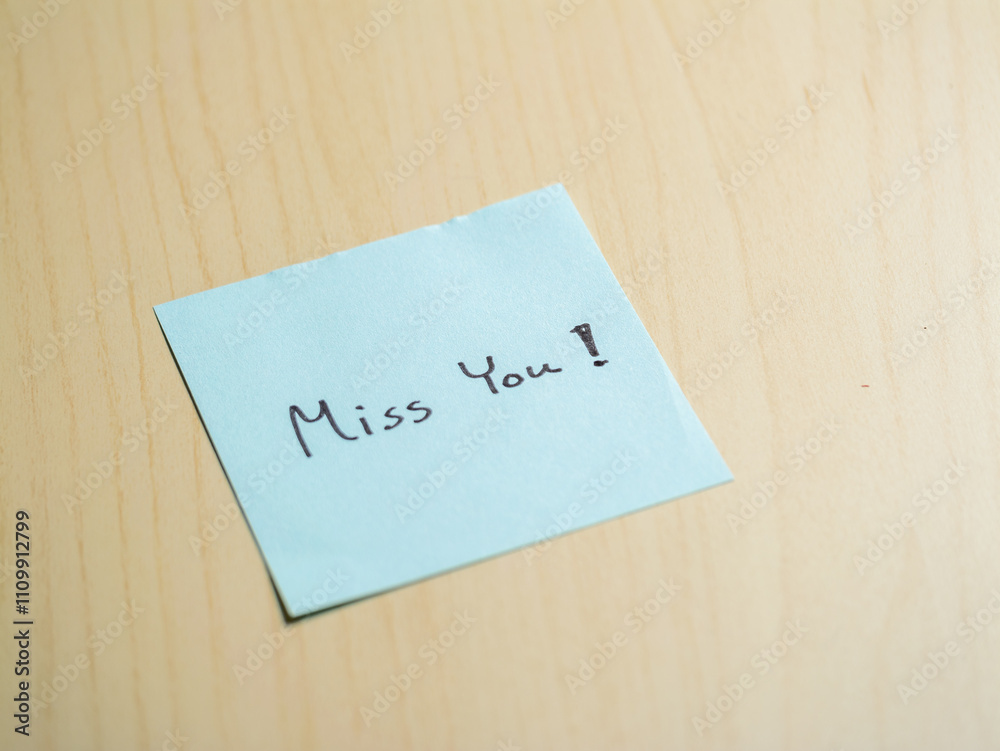 Miss You!
Adobe Stock | #1109912799